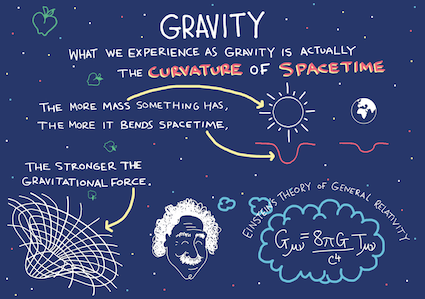 GRAVITY
WHAT WE EXPERIENCE AS GRAVITY IS ACTUALLY
THE CURVATURE OF SPACETIME
THE MORE MASS SOMETHING HAS,
THE MORE IT BENDS SPACETIME,
THE STRONGER THE
GRAVITATIONAL FORCE.
EINSTEIN'S THEORY OF GENERAL RELATIVITY
Gμν = 8πG Tμν
c⁴